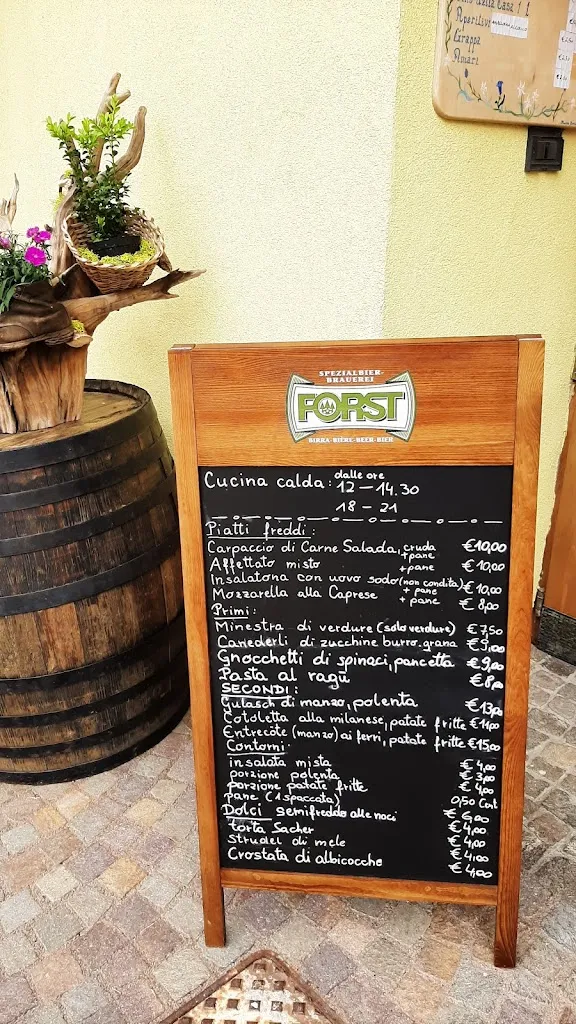 della Casa 1 l
Aperitivo
Grappa
Amari
SPEZIALBIER-
BRAUEREI
FORST
BIRRA-BIÈRE-BEER-BIER
Cucina calda: dalle ore 12-14.30
18-21
Piatti freddi:
Carpaccio di Carne Salada, cruda + pane €10,00
Affettato misto + pane €10,00
Insalatona con uovo sodo (non condita) + pane €10,00
Mozzarella alla Caprese + pane €8,00
Primi:
Minestra di verdure (solo verdure) €7,50
Canederli di zucchine burro, grana €9,00
Gnocchetti di spinaci, pancetta €9,00
Pasta al ragù €8,00
SECONDI:
Gulasch di manzo, polenta €13,00
Cotoletta alla milanese, patate fritte €11,00
Entrecôte (manzo) ai ferri, patate fritte €15,00
Contorni:
insalata mista €4,00
porzione polenta €3,00
porzione patate fritte €4,00
pane (1 spaccata) 0,50 Cent
Dolci semifreddo alle noci €
torta Sacher €4,00
Strudel di mele €4,00
Crostata di albicocche €4,00